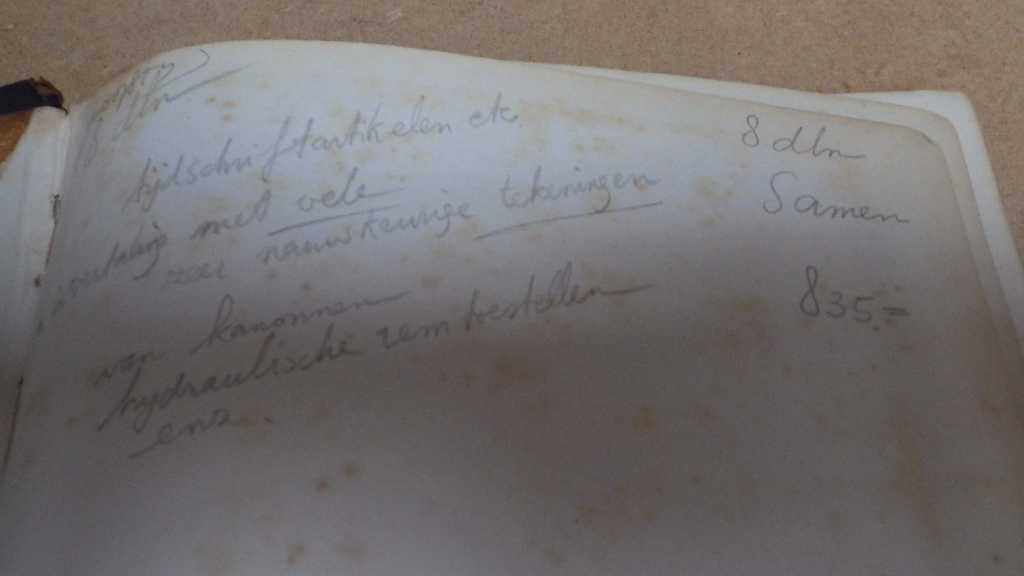 8 dln
tijdschriftartikelen etc.
8 dln
met vele
Samen
zeer nauwkeurige tekeningen
van kanonnen
835.=
hydraulische rem toestellen
enz.